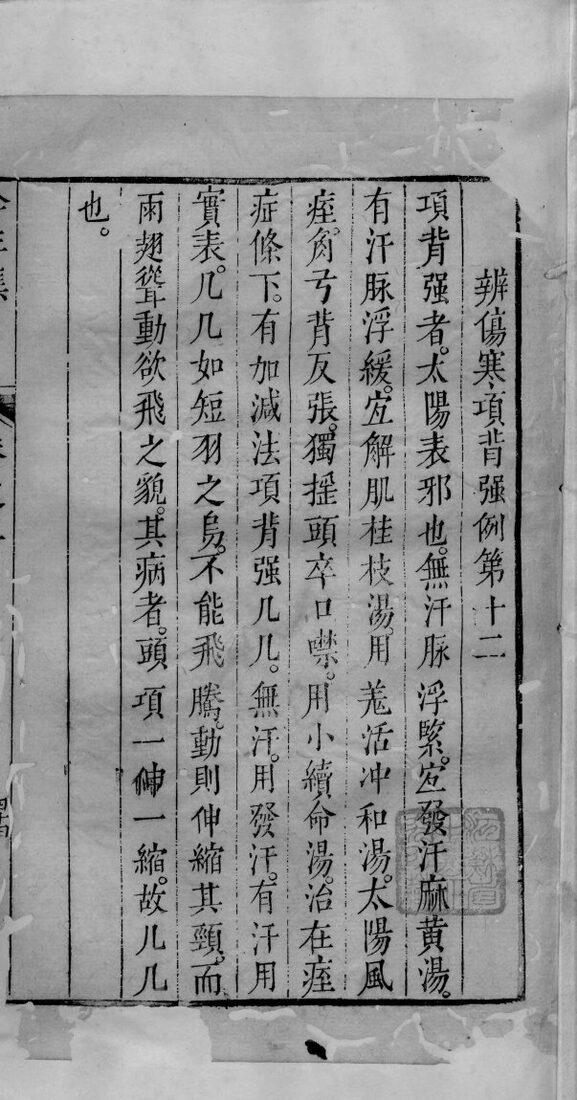 辨傷寒項背强例第十二
項背强者。太陽表邪也。無汗脉浮緊。宐發汗麻黄湯。
有汗脉浮緩。宐解肌桂枝湯。用羗活冲和湯。太陽風
痓。角弓背反張。獨摇頭卒口噤。用小續命湯。治在痓
症條下。有加減法項背强几几。無汗。用發汗。有汗用
實表。几几如短羽之鳥。不能飛騰。動則伸縮其頸。而
兩翅聳動欲飛之貌。其病者。頭項一伸一縮。故几几
也。
四十四